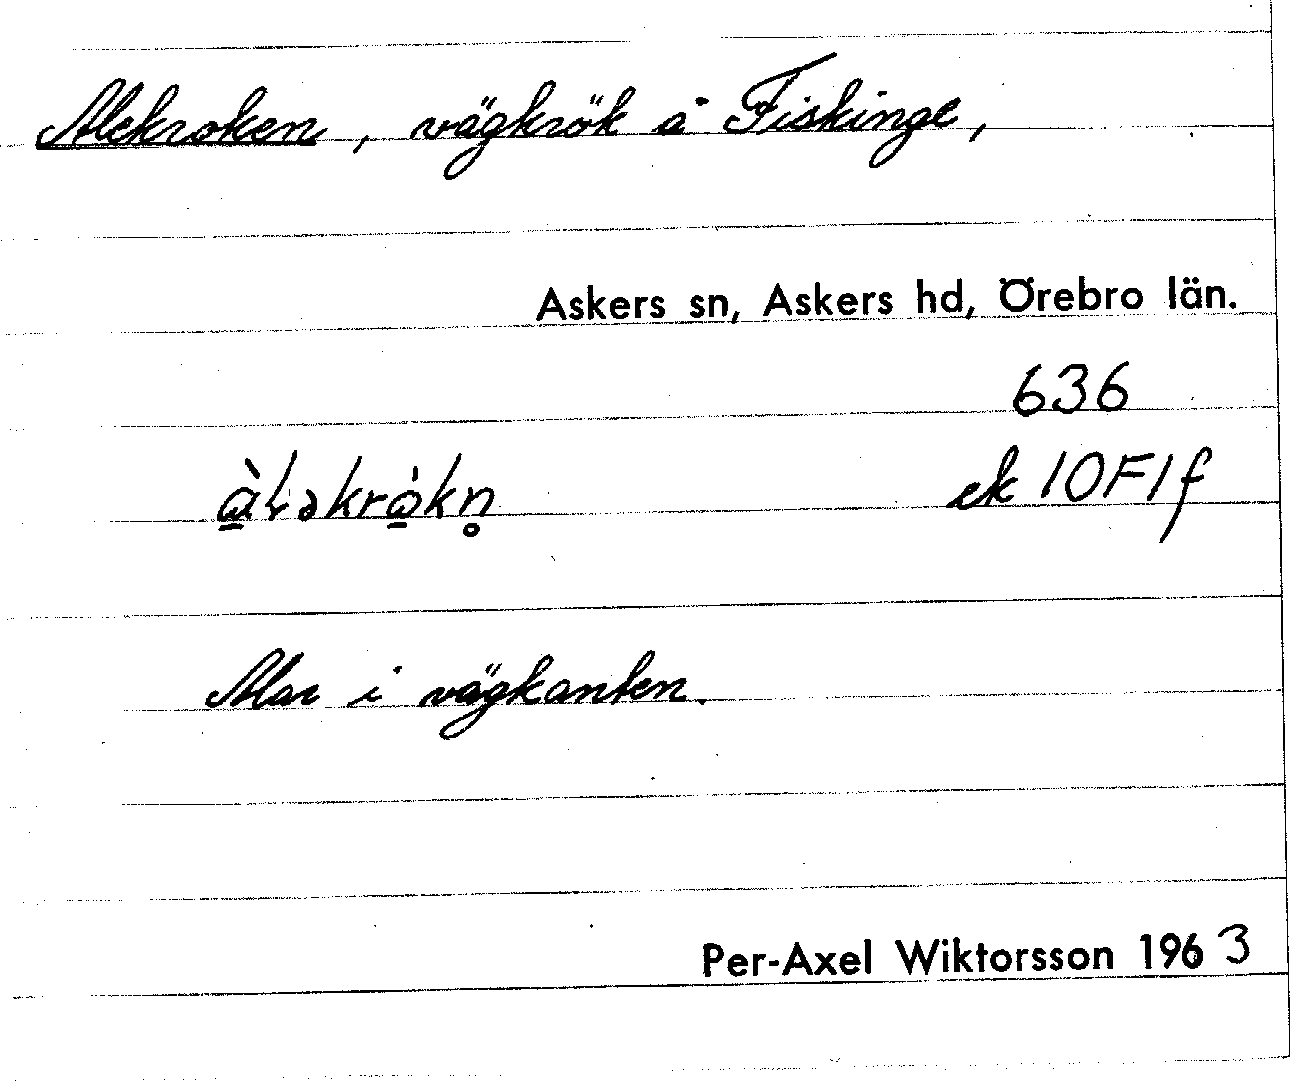 Alekroken, vägkrök å Fiskinge,
Askers sn, Askers hd, Örebro län.
636
ek 10F1f
Alar i vägkanten.
Per-Axel Wiktorsson 1963